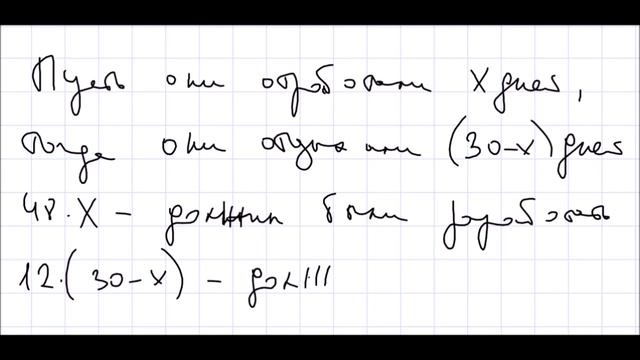 Пусть они отработали X дней,
тогда они отдыхали (30-x) дней
48·X - должны были заработать
12·(30-x) - дол